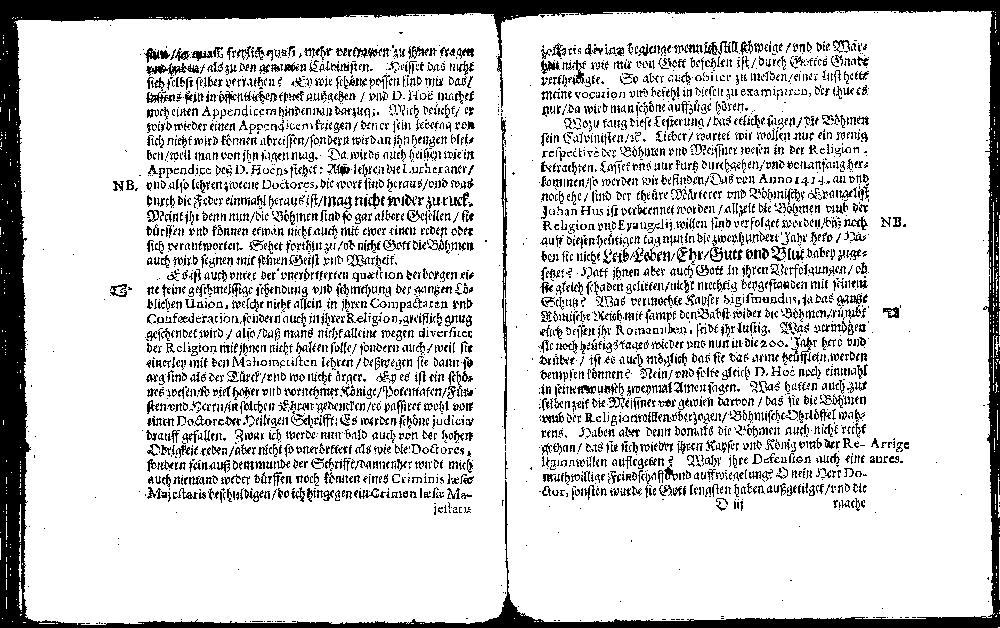 sein / ja quasi, freylich quasi, mehr vertrawen zu jhnen tragen
vnd haben / als zu den genanten Calvinisten. Heisset das nicht
sich selbst selber verrathen? Ey wie schöne possen sind mir das /
lassens fein in öffentlichen truck außgehen / vnd D. Hoë machet
noch einen Appendicem hindennan darzu;. Mich deucht / er
wird wieder einen Appendicem kriegen / den er sein lebetag von
sich nicht wird können abreissen / sondern wird an jhn hengen blei-
ben / weil man von jhn sagen mag. Da wirds auch heissen wie in
Appendice deß D. Hoëns stehet: Also lehren die Lutheraner /
NB. vnd also lehren zweene Doctores, die wort sind heraus / vnd was
durch die Feder einmahl heraus ist / mag nicht wider zu rück.
Meint jhr denn nun / die Böhmen sind so gar albere Gesellen / sie
dürffen vnd können etwan nicht auch mit ewer einen reden oder
sich verantworten. Sehet forthin zu / ob nicht Gott die Böhmen
auch wird segnen mit seinen Geist vnd Warheit.
Es ist auch vnter der vnerörterten quæstion verborgen ei-
ne feine geschmeissige schendung vnd schmehung der gantzen Lö-
blichen Union, welche nicht allein in jhren Compactaten vnd
Confœderation, sondern auch in jhrer Religion, greifflich gnug
geschendet wird / also / daß mans nicht alleine wegen diversitet
der Religion mit jhnen nicht halten solle / sondern auch / weil sie
einerley mit den Mahometisten lehren / deßwegen sie dann so
arg sind als der Türck / vnd wo nicht ärger. Ey es ist ein schö-
nes wesen / so viel hoher vnd vornehmer Könige / Potentaten / Für-
sten vnd Herrn / in solchen Ehren gedencken / es passiret wohl von
einen Doctore der Heiligen Schrifft: Es werden schöne judicia
drauff gefallen. Zwar ich werde nun bald auch von der hohen
Obrigkeit reden / aber nicht so vnerörtert als wie die Doctores,
sondern fein auß dem munde der Schrifft / dannenher wirdt mich
auch niemand weder dürffen noch können eines Criminis læsæ
Majestatis beschuldigen / do ich hingegen ein Crimen læsæ Ma-
jestatis
jestatis divinæ begienge wenn ich still schweige / vnd die War-
heit nicht wie mir von Gott befohlen ist / durch Gottes Gnade
verthedigte. So aber auch obiter zu melden / einer lust hette
meine vocation vnd befehl in diesen zu examiniren, der thue es
nur / da wird man schöne auffzüge hören.
Wozu taug diese Lesterung / das etliche sagen / die Böhmen
sein Calvinisten / ꝛc. Lieber / wartet wir wollen nur ein wenig
respectivè der Böhmen vnd Meissner wesen in der Religion
betrachten. Lasset vns nur kurtz durchgehen / vnd von anfang her-
kommen / so werden wir befinden / Das von Anno 1414. an vnd
noch ehe / sind der thewre Märterer vnd Böhmische Evangelist
Johan Hus ist verbrennet worden / allzeit die Böhmen vmb der
Religion vnd Evangelij willen sind verfolget worden / biß noch NB.
auff diesen heutigen tag nun in die zwey hundert Jahr hero / Ha-
ben sie nicht Leib / Leben / Ehr / Gutt vnd Blut dabey zuge-
setzet? Hatt jhnen aber auch Gott in jhren Verfolgungen / ob
sie gleich schaden gelitten / nicht mechtig beygestanden mit seinem
Schutz? Was vermochte Kayser Sigismundus, ja das gantze
Römische Reich mit sampt den Babst wider die Böhmen / rümbt
euch dessen jhr Romanuben, seid jhr lustig. Was vermögen
sie noch heutigs tages wieder vns nun in die 200. Jahr hero vnd
drüber / ist es auch möglich das sie das arme heufflein werden
dempfen können? Nein / vnd solte gleich D. Hoë noch einmahl
in seinem wunsch zweymal Amen sagen. Was hatten auch zur
selben zeit die Meissner vor gewien darvon / das sie die Böhmen
vmb der Religion willen vberzogen / Böhmische Ohrlöffel wah-
rens. Haben aber denn domals die Böhmen auch nicht recht
gethan / das sie sich wieder jhren Kayser vnd König vmb der Re- Arrige
ligion willen auflegeten? Wahr jhre Defension auch eine aures.
muthwillige Feindschafft vnd auffwiegelung? O nein Herr Do-
ctor, sonsten wurde sie Gott lengsten haben außgetilget / vnd die
D iij rache